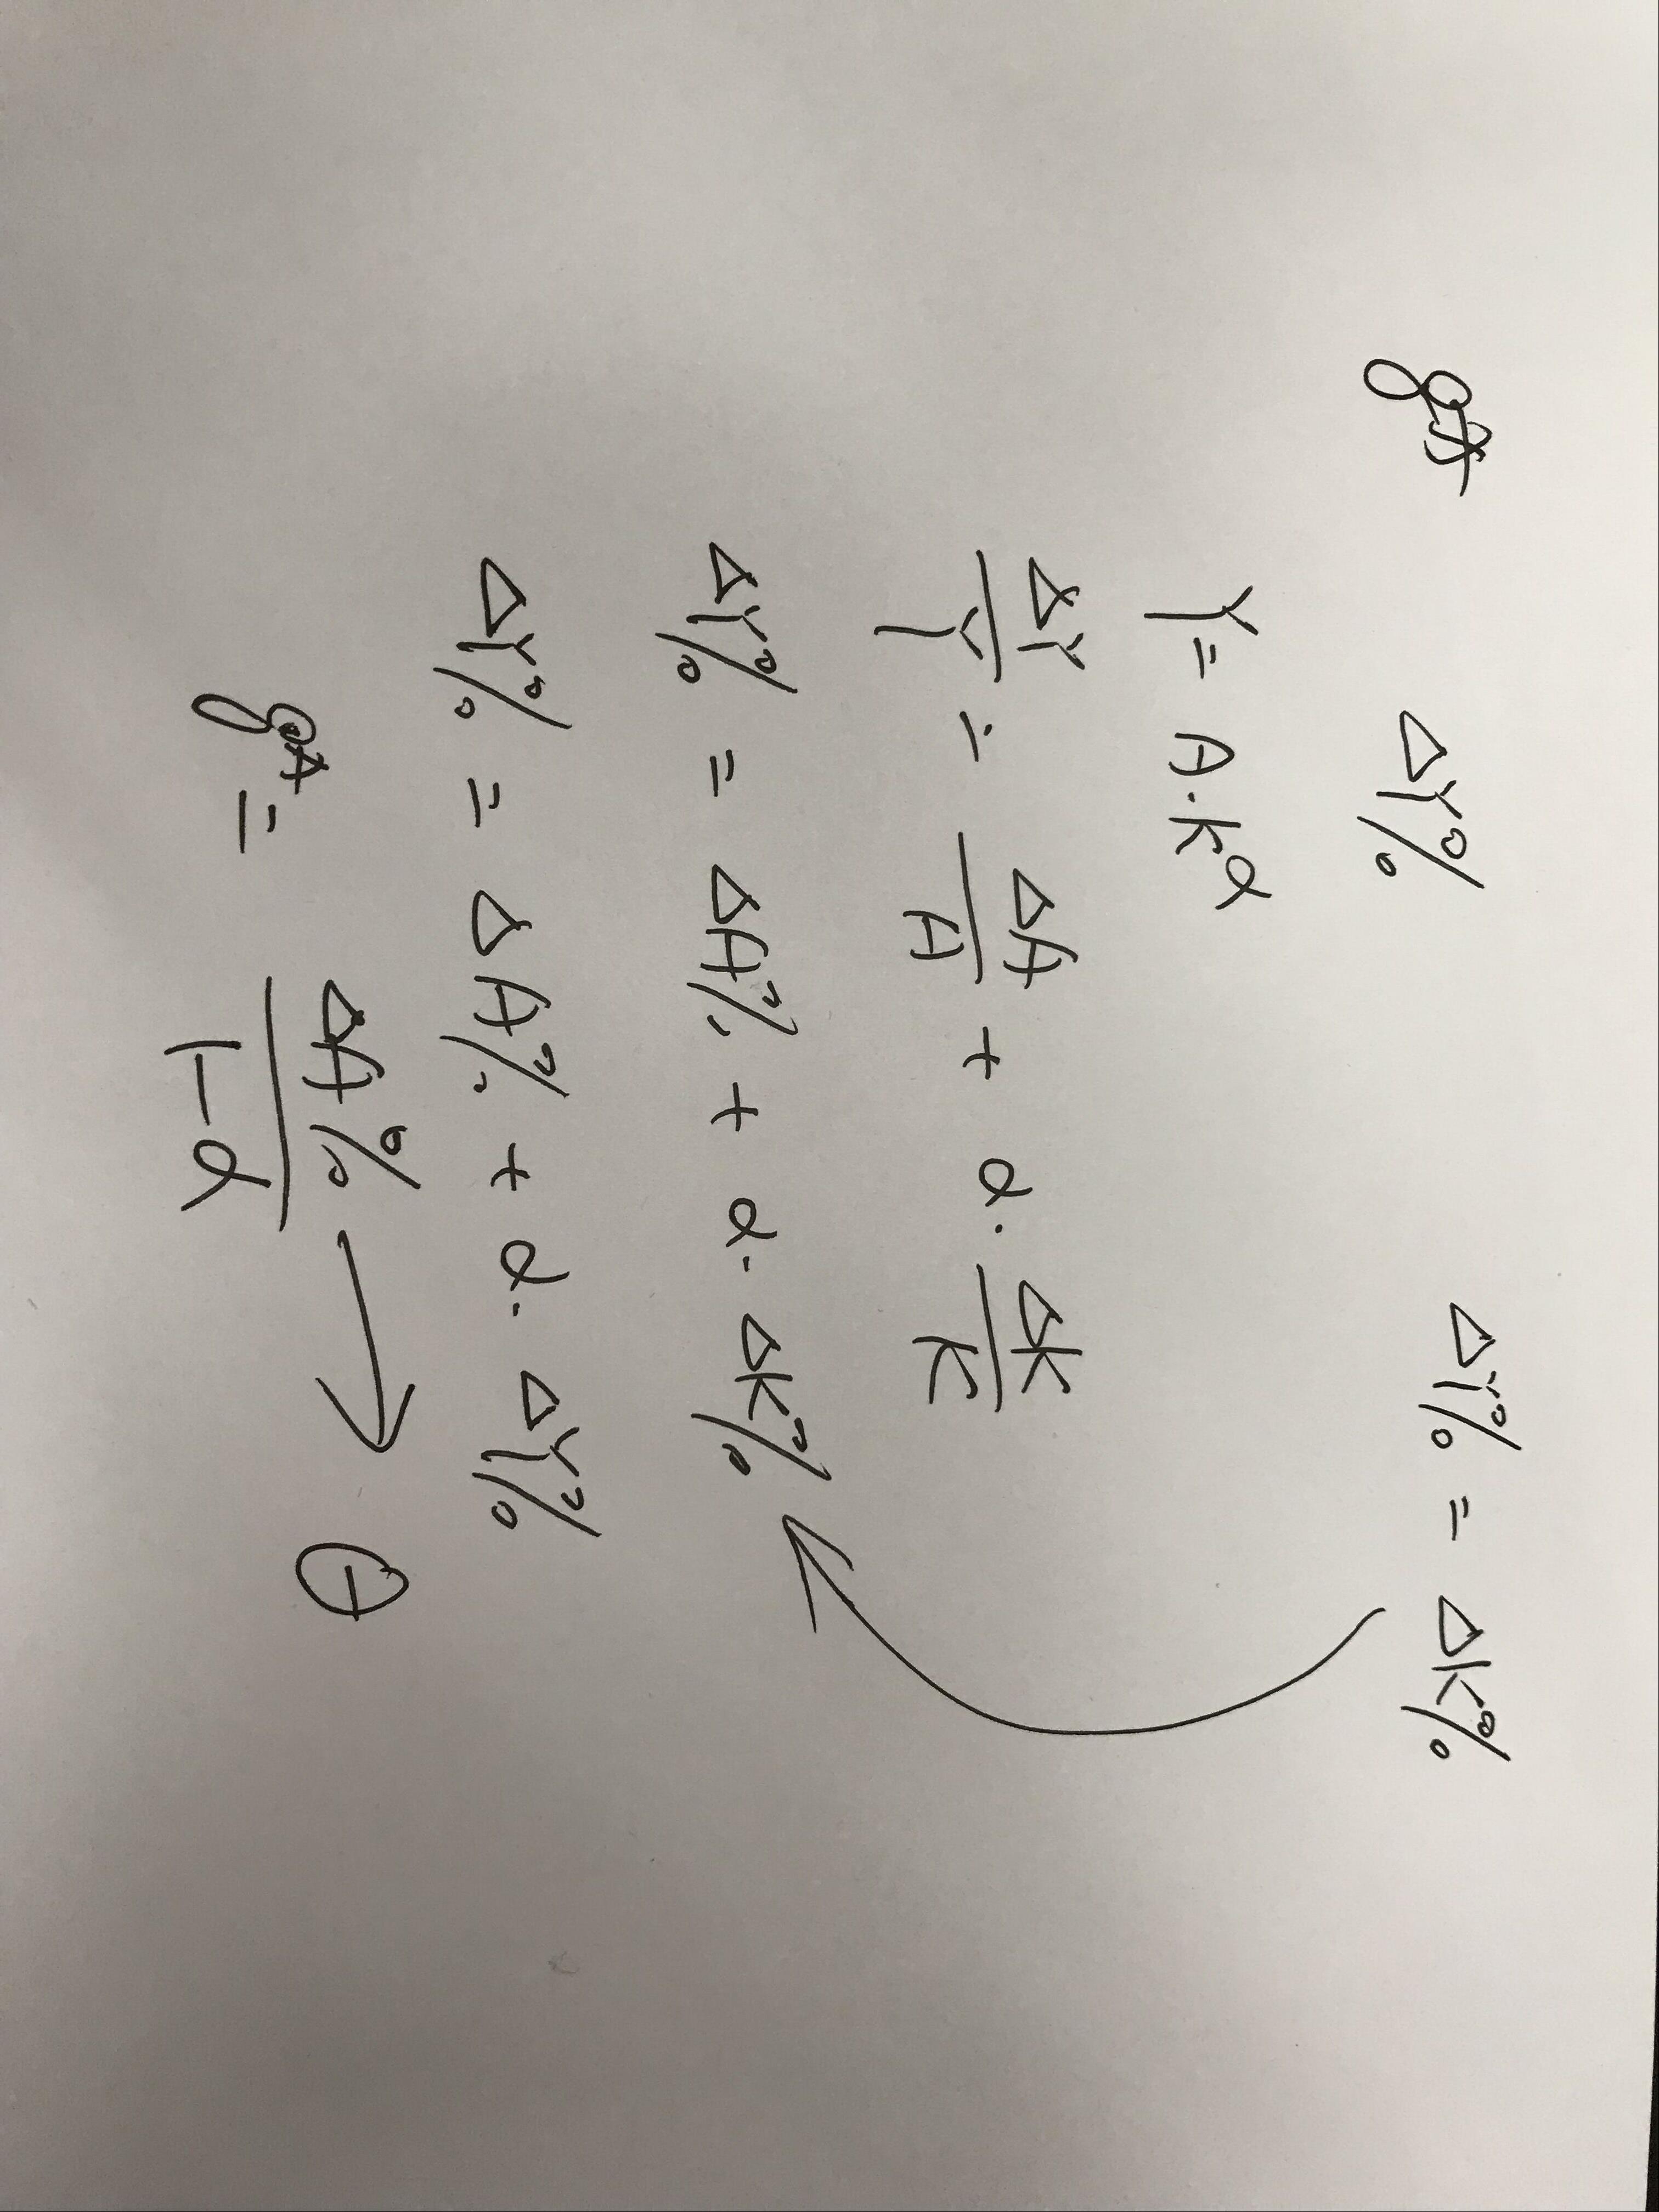 g_A ΔY% ΔY% = ΔK%
Y = A·K^α
ΔY/Y = ΔA/A + α·ΔK/K
ΔY% = ΔA% + α·ΔK%
ΔY% = ΔA% + α·ΔY%
g_A = ΔA%/(1-α) → θ